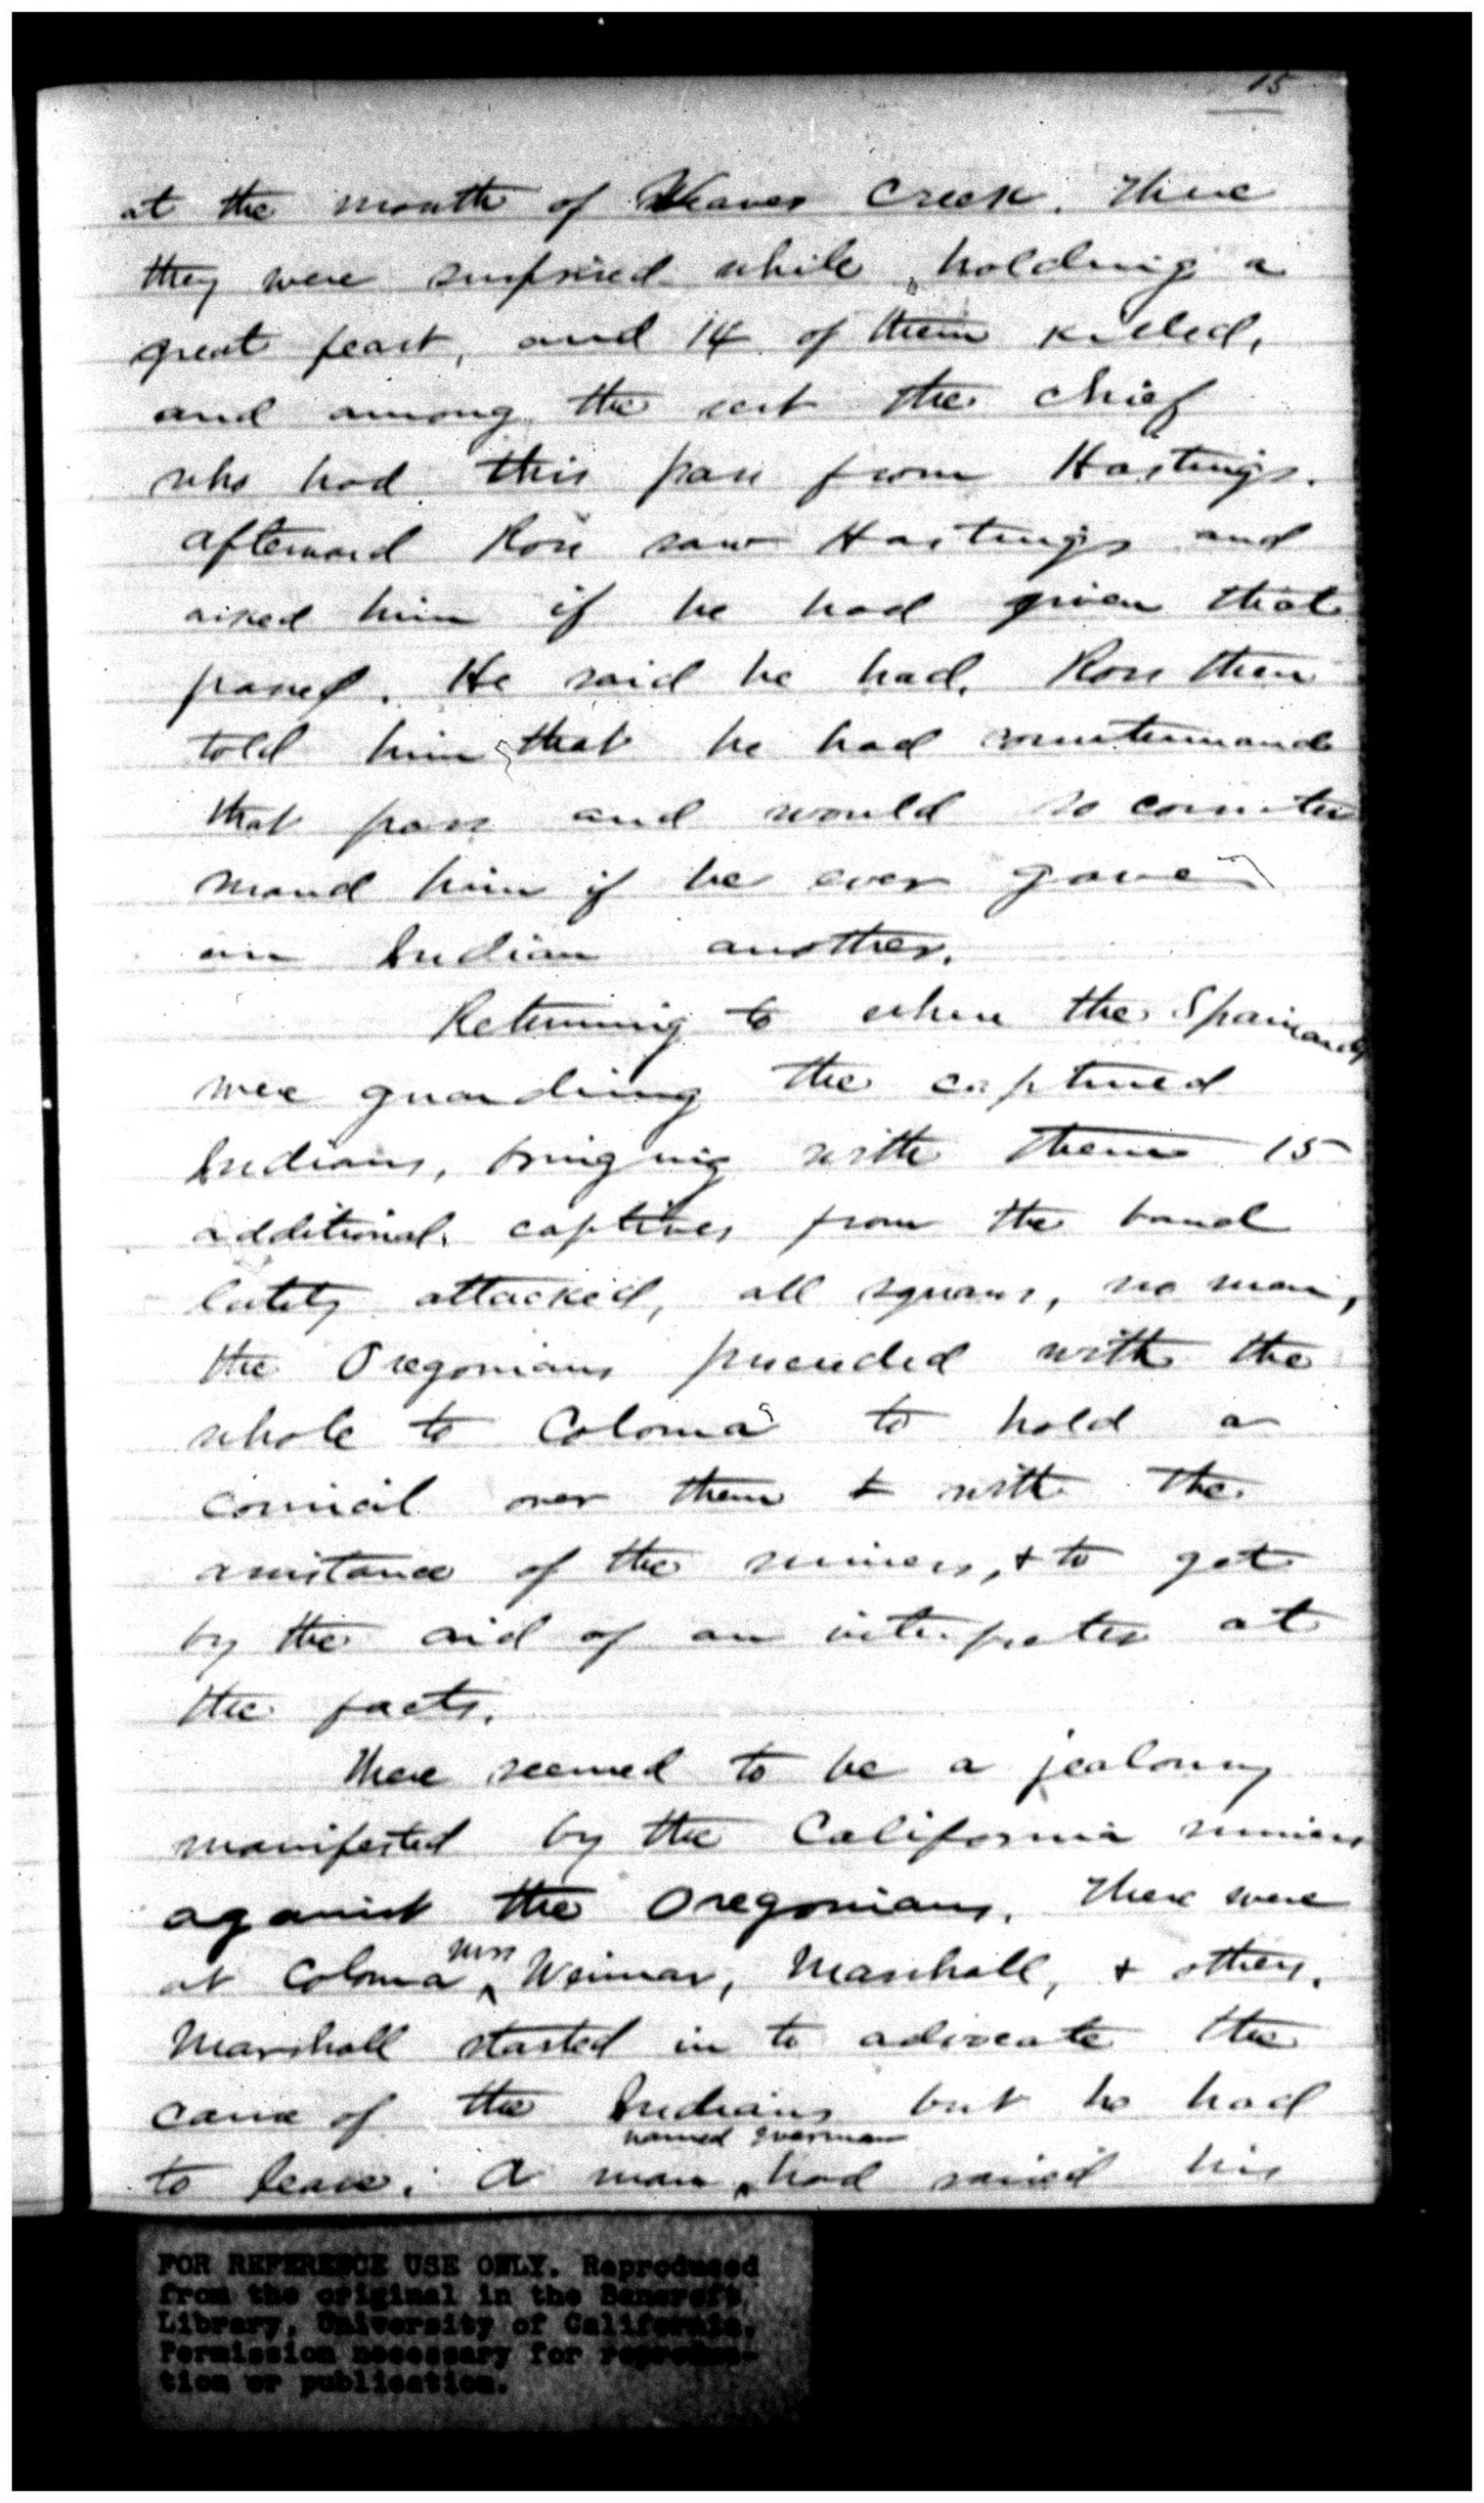 15
at the mouth of Weaver Creek. There
they were surprised while holding a
great feast, and 14 of them killed,
and among the rest the chief
who had this pass from Hastings.
afterward Ross saw Hastings and
asked him if he had given that
passed. He said he had. Ross then
told him that he had countermand
that pass and would so counter
mand him if he ever gave
an Indian another.
Returning to where the Spaniards
were guarding the captured
Indians, bringing with them 15
additional captives from the band
lately attacked, all squaws, no men,
the Oregonians proceeded with the
whole to Coloma to hold a
council over them & with the
assistance of the miners, & to get
by the aid of an interpreter at
the facts.
There seemed to be a jealousy
manifested by the California miners
against the Oregonians. There were
at Coloma Mrs Weimar, Marshall, & others.
Marshall started in to advocate the
cause of the Indians but he had
to leave. A man named had raised his
FOR REFERENCE USE ONLY. Reproduced
from the original in the Bancroft
Library, University of California.
Permission necessary for reproduc-
tion or publication.